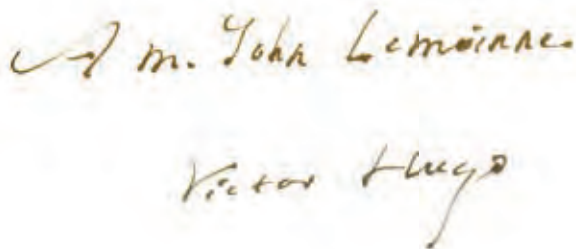 A m. John Lemoinne.
Victor Hugo